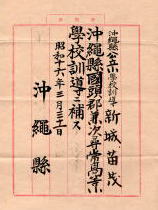 沖繩縣公立小學校訓導
新城苗茂
沖繩縣國頭郡兼次尋常高等小
學校訓導ニ補ス
昭和十六年三月三十一日
沖繩縣